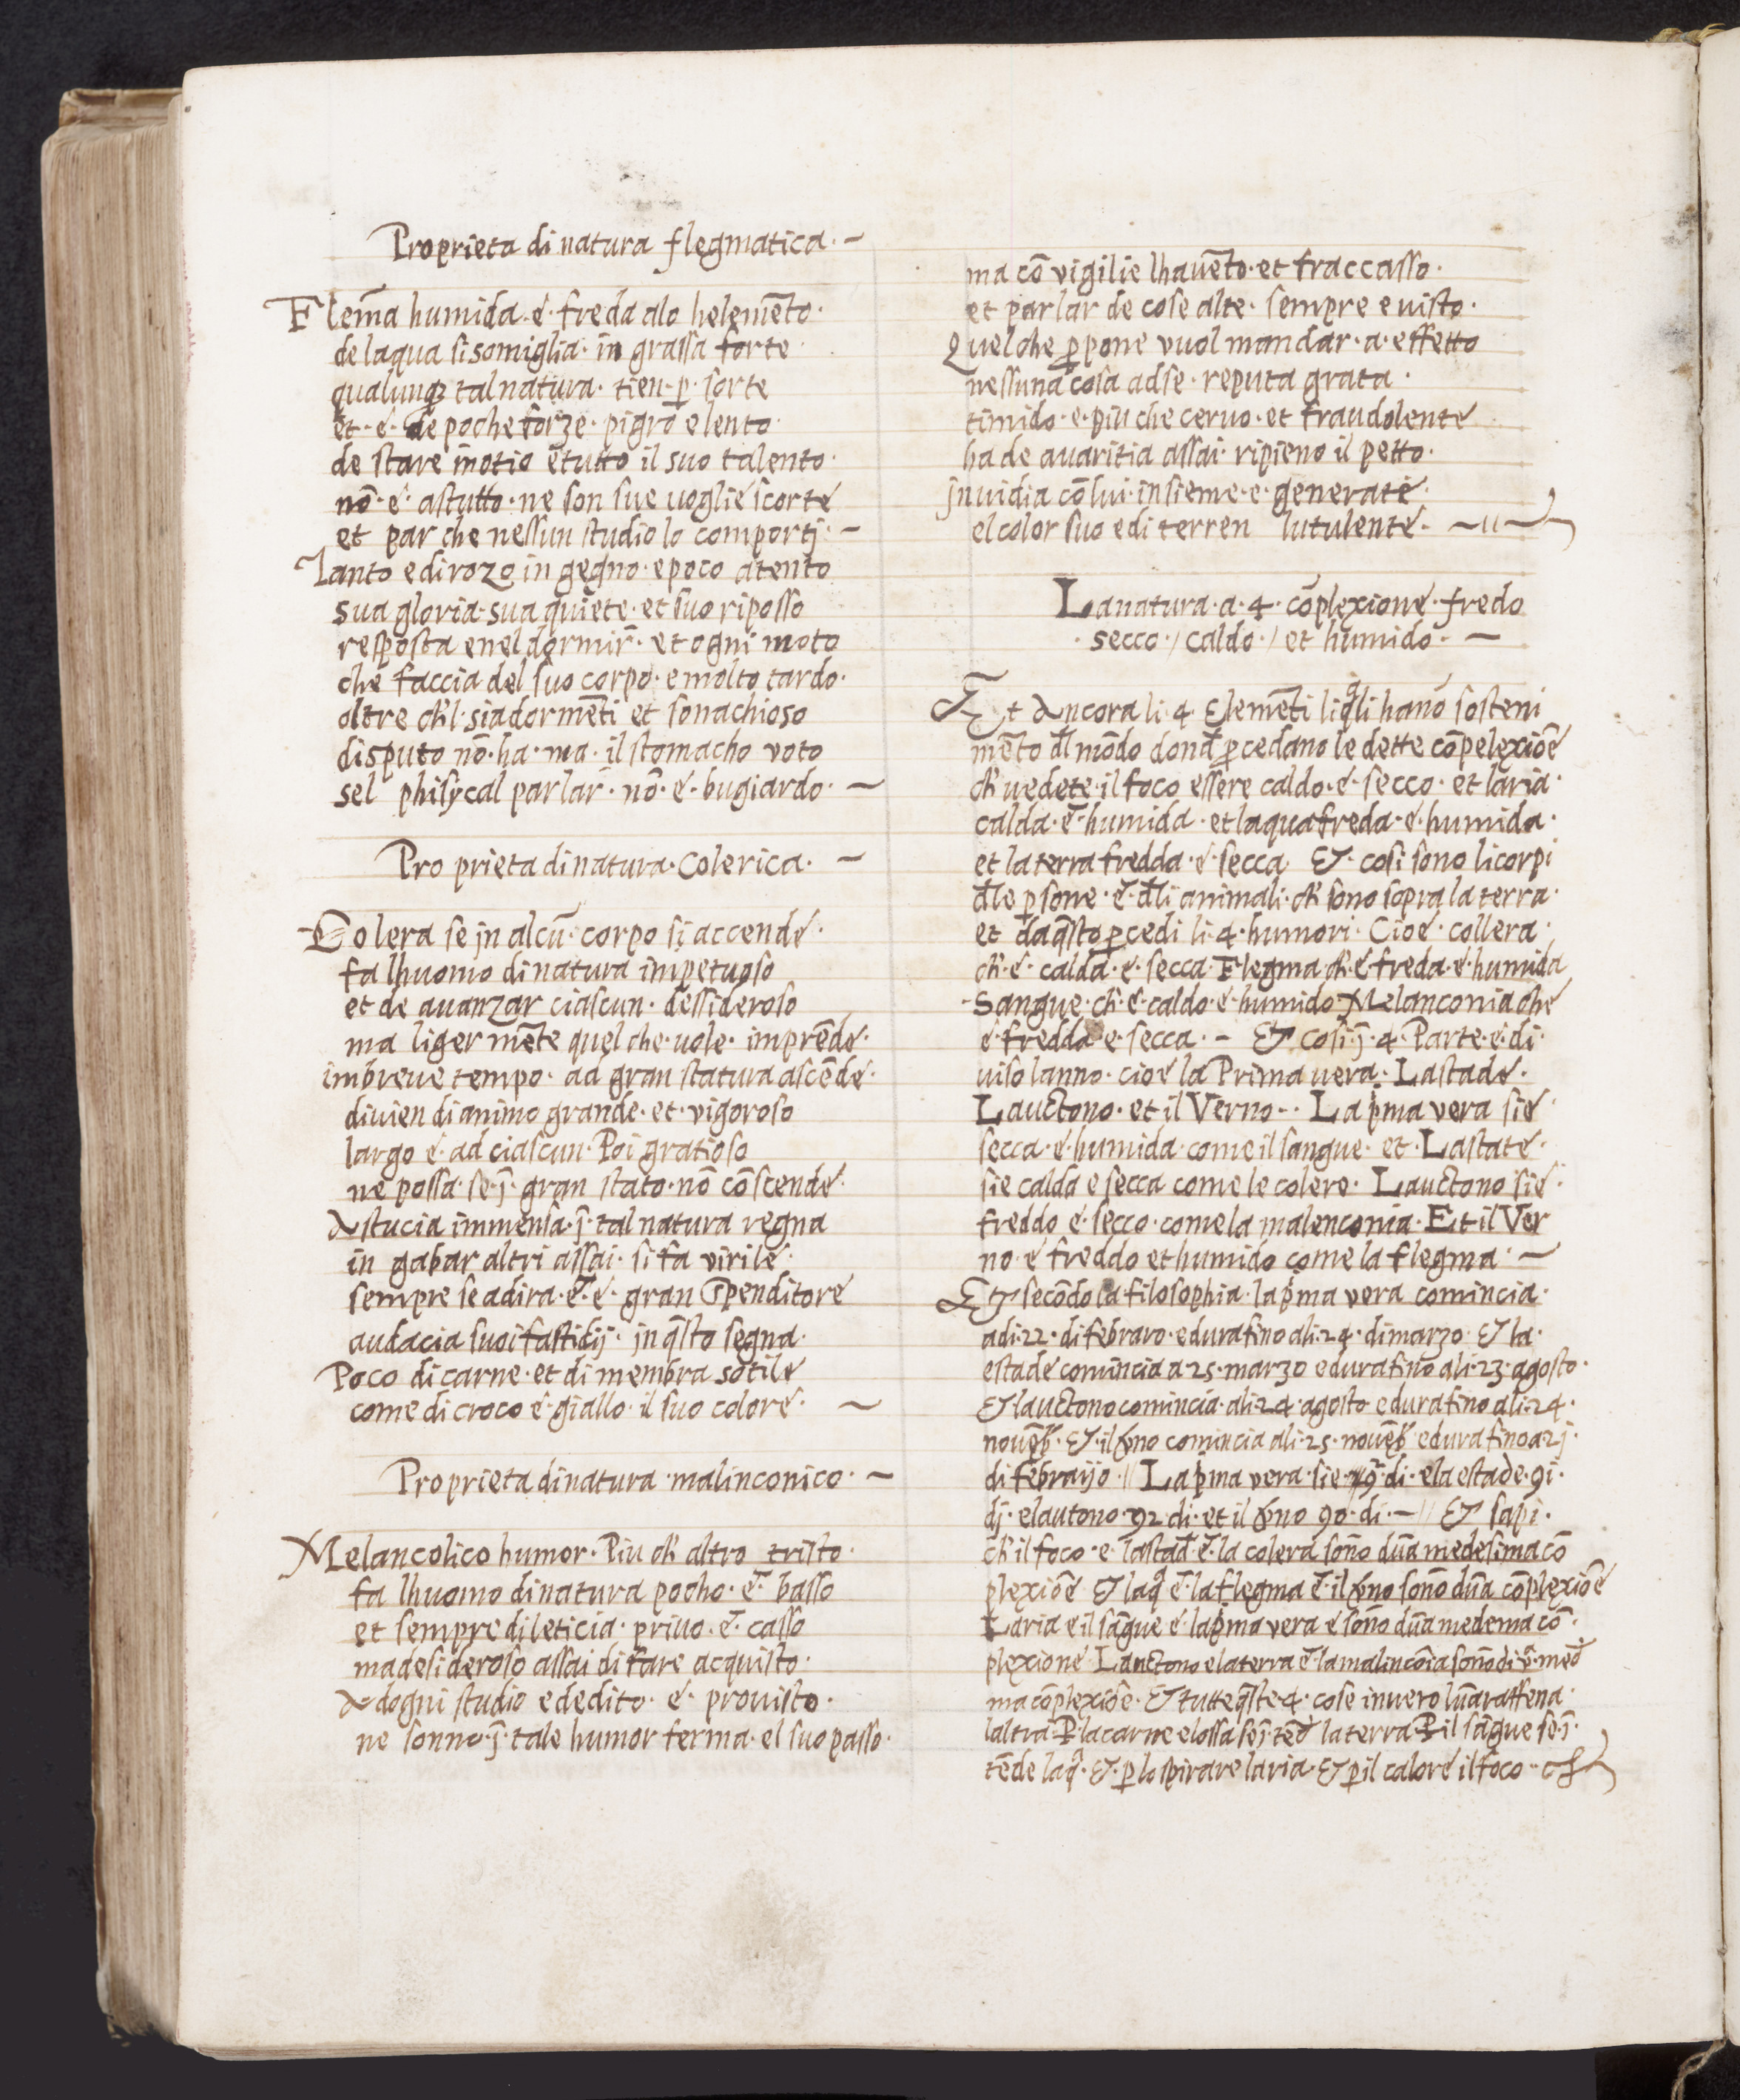 Proprieta di natura flegmatica · ~
Flem̃a humida · é · freda alo helemẽto ·
de laqua si somiglia · in grassa forte
qualunqꝫ tal natura · tien · ꝑ · sorte
et · é · de poche forze · pigro e lento
de stare inotio e tutto il suo talento ·
nõ · é · astutto · ne son sue uoglie scorte
et par che nessun studio lo comportj · ~
Tanto e di rozo in gegno · e poco atento
sua gloria · sua quiete · et suo riposso
resposta e nel dormir̃ · et ogni moto
che faccia del suo corpo · e molto tardo ·
oltre ch'l · sia dormẽti et sonachioso
disputo nõ · ha · ma · il stomacho voto
sel phisycal parlar̃ · nõ · é · bugiardo · ~
Pro prieta di natura · Colerica · ~
Colera se jn alcũ · corpo si accende ·
fa lhuomo di natura impetuoso
et de auanzar ciascun · dessideroso
ma liger mẽte quel che · uole · imprẽde ·
imbreue tempo · ad gran statura ascẽde ·
diuien di animo grande · et · vigoroso
largo é · ad ciascun · Poi gratioso
ne possa · se · j̃ · gran stato · nõ cõscende ·
Astucia immensa · j̃ · tal natura regna
in gabar altri assai · si fa virile ·
sempre se adira · é̃ · é · gran spenditore
audacia suoi fastidij · in q̃sto segna ·
Poco di carne · et di membra sotile
come di croco é · giallo · il suo colore · ~
Proprieta di natura · malinconico · ~
Melancolico humor · Piu ch' altro tristo ·
fa lhuomo di natura pocho · é̃ · basso
et sempre di leticia · priuo · é̃ · casso
ma desideroso assai di fare acquisto ·
A dogni studio e dedito · é · prouisto ·
ne sonno · j̃ · tale humor ferma · el suo passo ·
ma cõ vigilie lhauẽto · et fraccasso ·
et parlar de cose alte · sempre e uisto ·
Quel che ꝓpone vuol mandar · a · effetto
nessuna cosa ad se · reputa grata ·
timido · e · piu che ceruo · et fraudolente
ha de auaritia assai · ripieno il petto ·
jnuidia cõ lui · insieme · e · generate ·
el color suo e di terren lutulente · ~ıı~
La natura · a · 4 · cõplexione · fredo
· secco · / caldo · / et humido · ~
Et Ancora li 4 Elemẽti li qͣli hanõ sosteni
mẽto dl̃ mõdo dond̃ ꝓcedano le dette cõpelexiõe
ch' uedete · il foco essere caldo · é · secco · et laria ·
calda · é̃ · humida · et laqua freda · é · humida ·
et la terra fredda · é · secca Et · cosi sono li corpi
dl̃e ꝑsone · é̃ · dl̃i animali · ch' sono sopra la terra ·
et da q̃sto ꝓcedi li · 4 · humori · Cioe · collera ·
ch' · é · calda · é · secca · Flegma ch' · é freda · é · humida
Sangue · ch' · é · caldo · é · humido · Melanconia che
é · fredda e · secca · – Et cosi · j̃ · 4 · Parte · é · di ·
uiso lanno · cioé la Prima uera · Lastade ·
Lauctono · et il Verno · · La p̃ma vera sie ·
secca · é · humida · come il sangue · et · Lastate ·
sie calda e secca come le colere · Lauctono sie ·
freddo é · secco · come la malenconia · Et il Ver
no · é freddo et humido come la flegma · ~
Et secõdo la filosophia · la p̃ma vera comincia ·
adi · 22 · di febraro · e dura fino ali · 24 · di marzo · Et la ·
estade comincia a 25 · marzo e dura fino ali · 23 · agosto ·
Et lauctono comincia · ali · 24 · agosto e dura fino ali · 24 ·
nouẽb̃ · Et · il v̾no comincia ali · 25 · nouẽb̃ e dura fino a 2j ·
di febraijo // La p̃ma vera · sie · di · e la estade · 9i ·
dj · e lautono · 92 · di · et il v̾no 90 · di · – // Et sapi ·
ch' il foco · e · lastad̃ · é̃ · la colera sõno dũa medesima cõ
plexiõe Et laqͣ é̃ · la flegma é̃ · il v̾no sonõ dũa cõplexiõe
Laria e il sãgue é · la p̃ma vera é sonõ dũa medema cõ ·
plexione · Lauctono e la terra é̃ la malincõia sonõ di ũ · med̃
ma cõplexiõe · Et tutte q̃ste · 4 · cose in uero lũa raffena ·
laltra · P̲ · la carne e lossa se j̃ · tẽd̃ la terra · P̲ il sãgue se · j̃ ·
tẽde laqͣ · Et · ꝑ lo spirare laria · Et ꝑ il calore il foco · ·